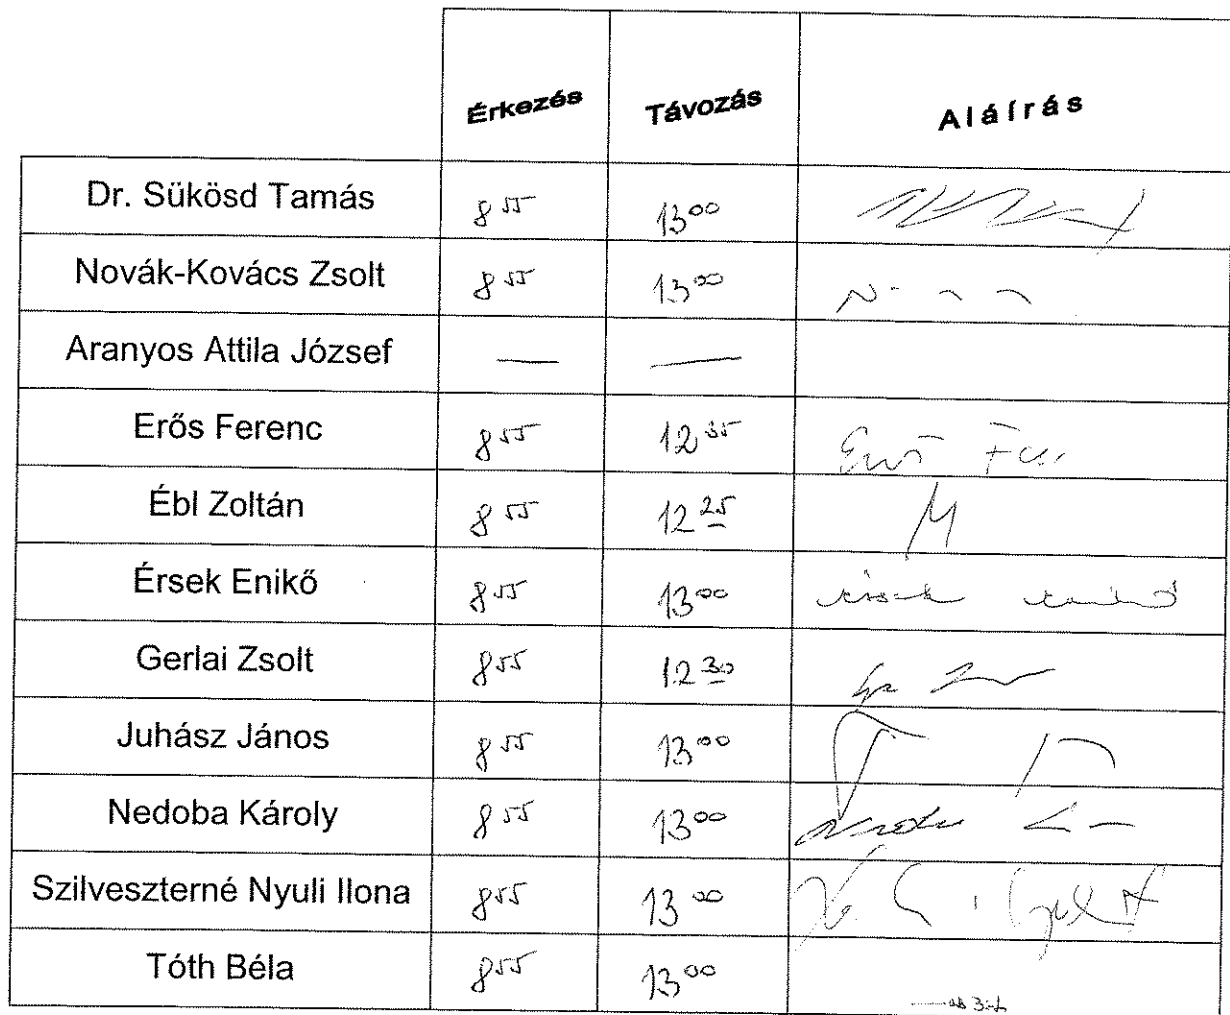 Érkezés Távozás Aláírás
Dr. Sükösd Tamás 8 55 13 00
Novák-Kovács Zsolt 8 55 13 00
Aranyos Attila József — —
Erős Ferenc 8 55 12 35 Erős
Ébl Zoltán 8 55 12 25
Érsek Enikő 8 55 13 00 Érsek Enikő
Gerlai Zsolt 8 55 12 30
Juhász János 8 55 13 00
Nedoba Károly 8 55 13 00
Szilveszterné Nyuli Ilona 8 55 13 00
Tóth Béla 8 55 13 00